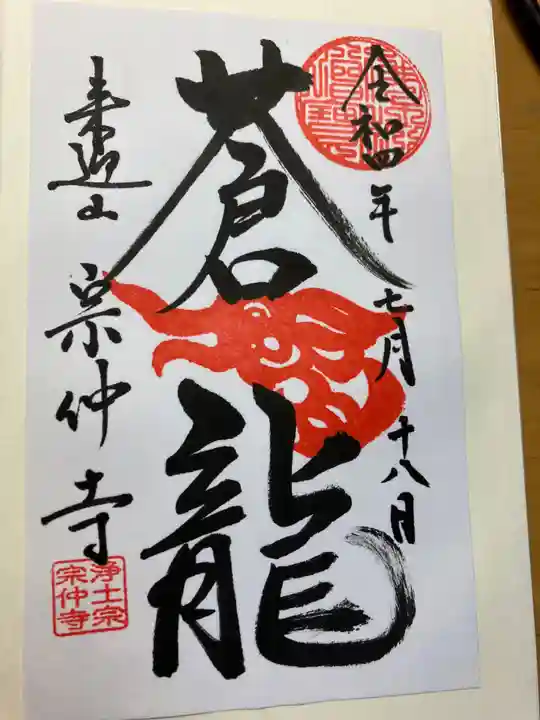 令和四年七月十八日
蒼龍
来迎山宗仲寺
浄土宗
宗仲寺